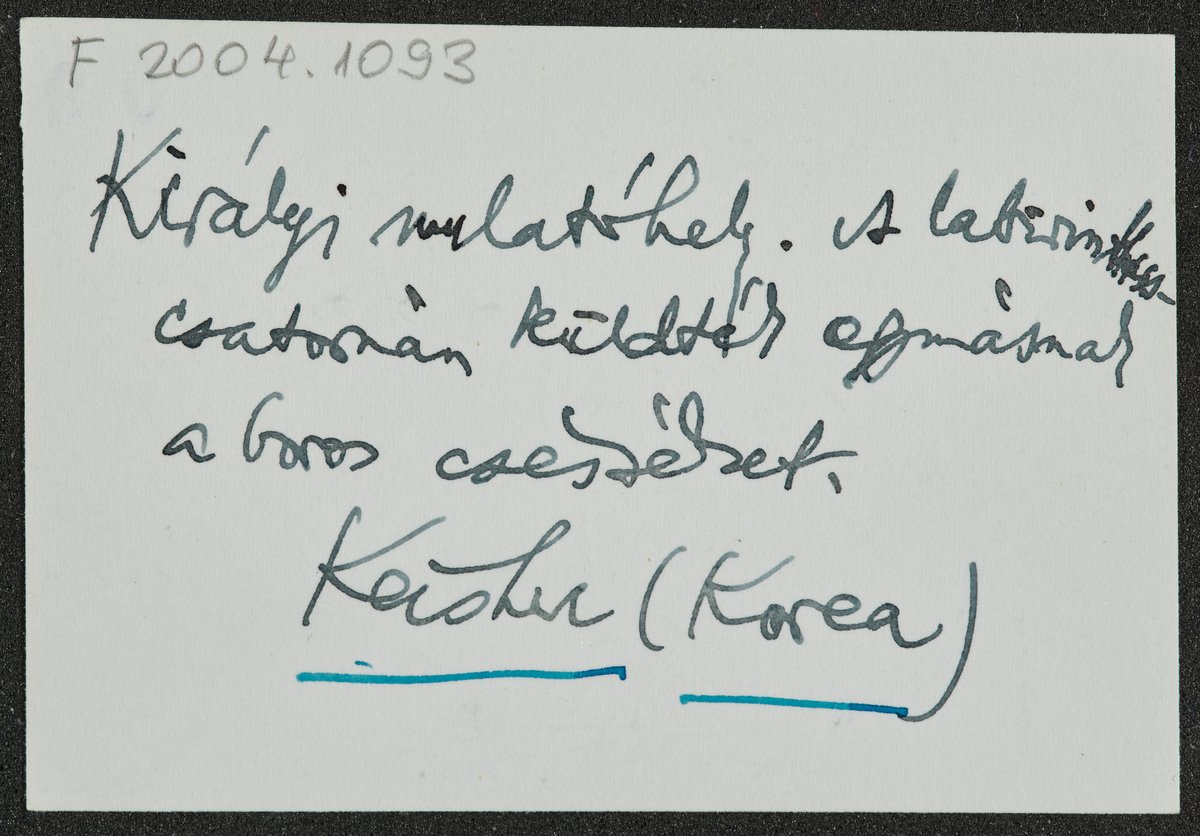 F 2004.1093
Királyi mulatóhely. A labirintus-
csatornán küldték egymásnak
a boros csészéket.
(Korea)